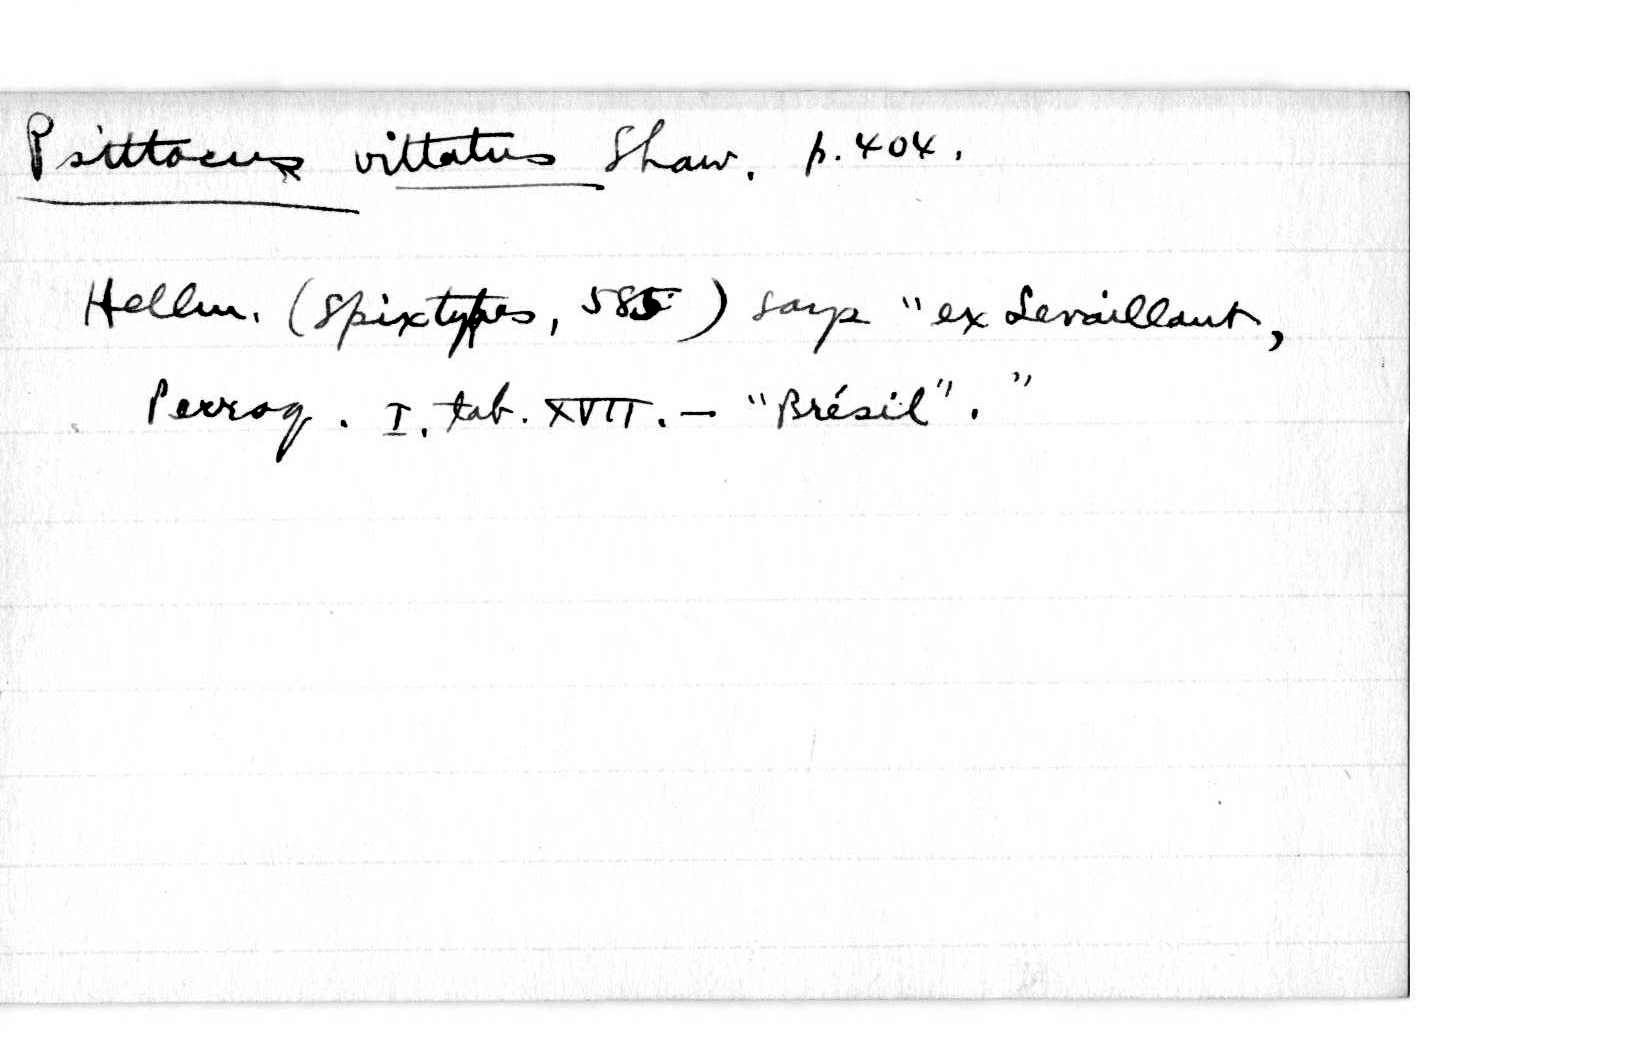 Psittacus vittatus Shaw. p. 404.
Hellm. (Spixtypes, 585) says "ex Levaillant,
Perroq. I. tab. XVII. — "Brésil"."